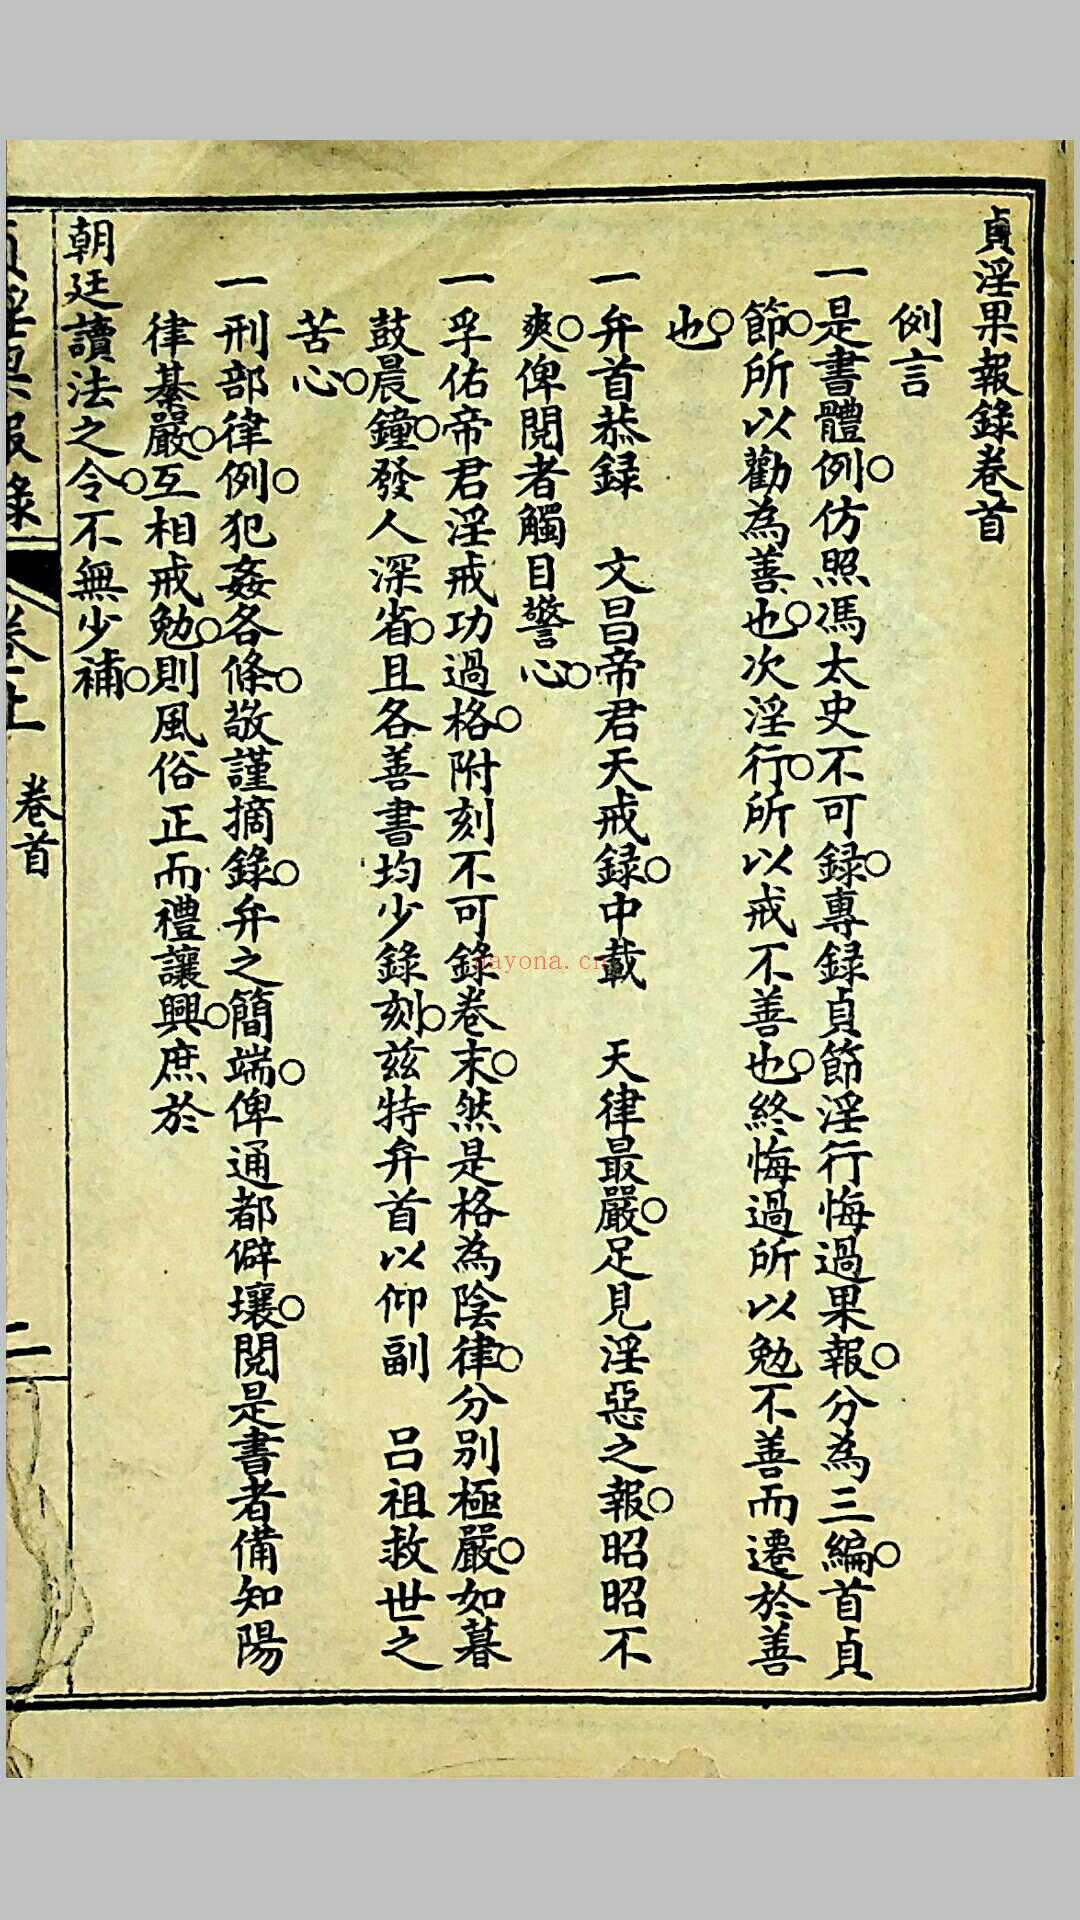 貞淫果報錄卷首
例言
一是書體例○仿照馮太史不可録○專録貞節淫行悔過果報○分為三編○首貞
節○所以勸為善也○次淫行○所以戒不善也○終悔過所以勉不善而遷於善
也○
一弁首恭録　文昌帝君天戒録○中載　天律最嚴○足見淫惡之報○昭昭不
爽○俾閱者觸目警心○
一孚佑帝君淫戒功過格○附刻不可錄卷末○然是格為陰律○分別極嚴○如暮
鼓晨鐘○發人深省○且各善書均少錄刻○茲特弁首以仰副　呂祖救世之
苦心○
一刑部律例○犯姦各條○敬謹摘錄○弁之簡端○俾通都僻壤○閱是書者備知陽
律綦嚴○互相戒勉○則風俗正而禮讓興○庶於
朝廷讀法之令○不無少補○
貞淫果報錄
卷上
卷首
二
nayona.cn